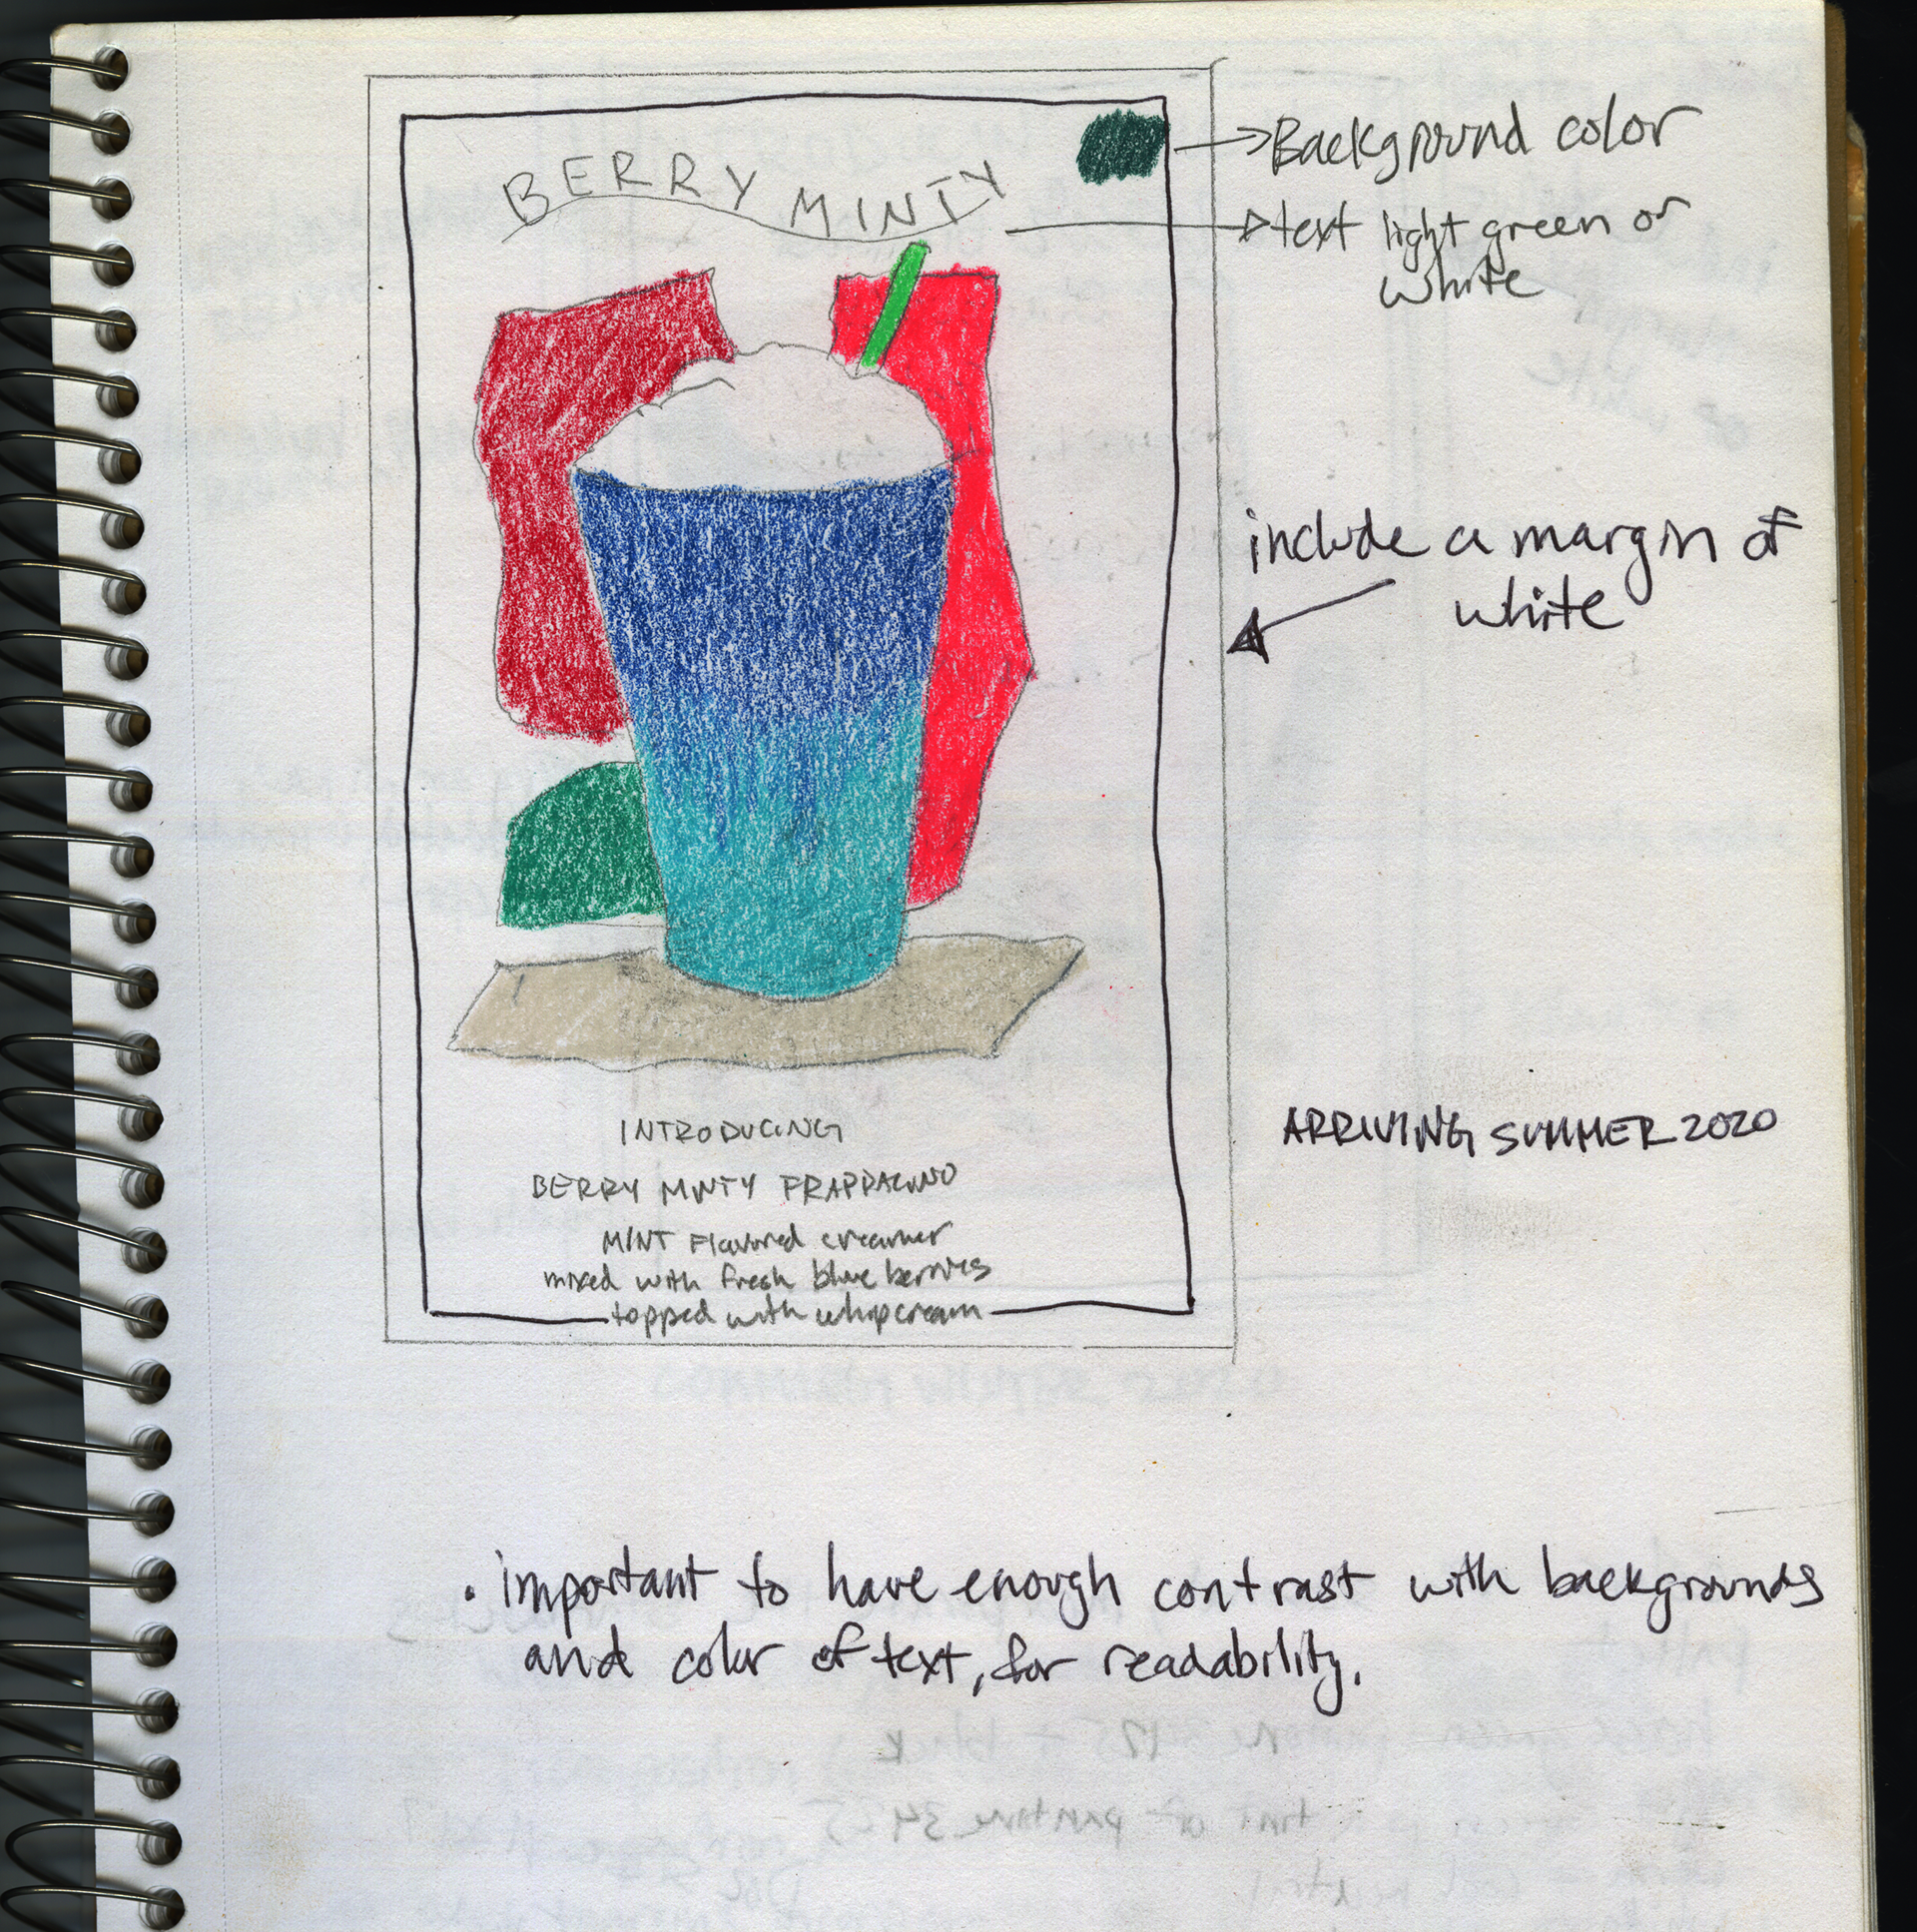 BERRY MINTY
Background color
text light green or
white
include a margin of
white
INTRODUCING
BERRY MINTY FRAPPACINO
MINT Flavored creamer
mixed with fresh blue berries
topped with whipcream
ARRIVING SUMMER 2020
• important to have enough contrast with backgrounds
and color of text, for readability.